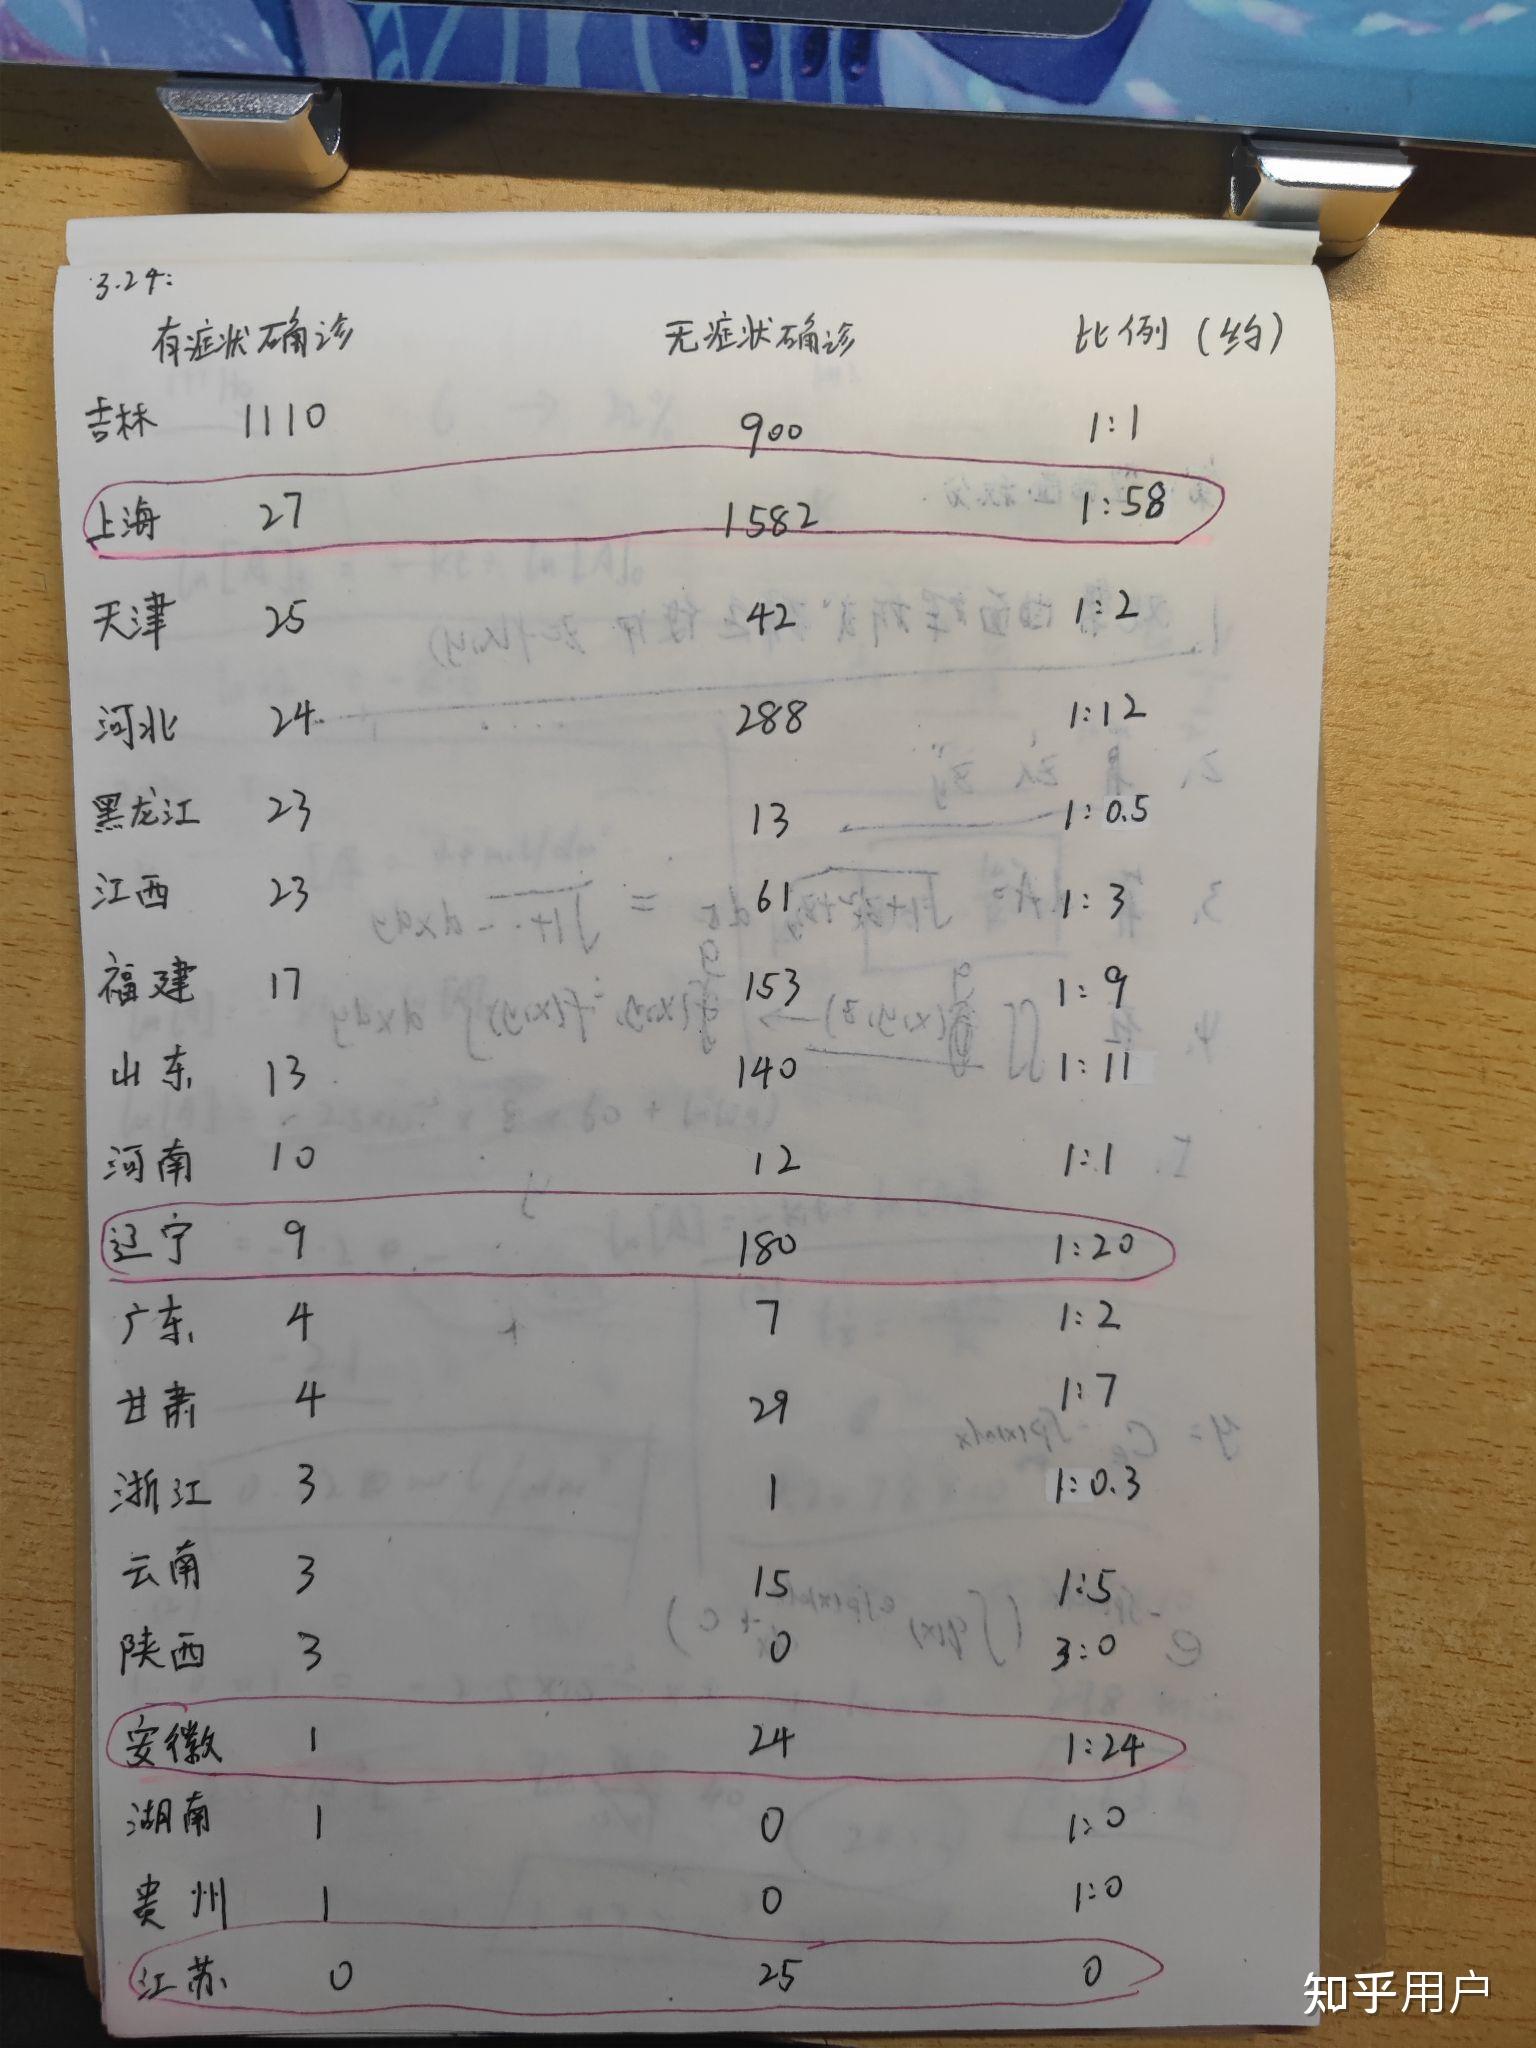 3.24:
有症状确诊 无症状确诊 比例(约)
吉林 1110 900 1:1
上海 27 1582 1:58
天津 25 42 1:2
河北 24 288 1:12
黑龙江 23 13 1:0.5
江西 23 61 1:3
福建 17 153 1:9
山东 13 140 1:11
河南 10 12 1:1
辽宁 9 180 1:20
广东 4 7 1:2
甘肃 4 29 1:7
浙江 3 1 1:0.3
云南 3 15 1:5
陕西 3 0 3:0
安徽 1 24 1:24
湖南 1 0 1:0
贵州 1 0 1:0
江苏 0 25 0
知乎用户